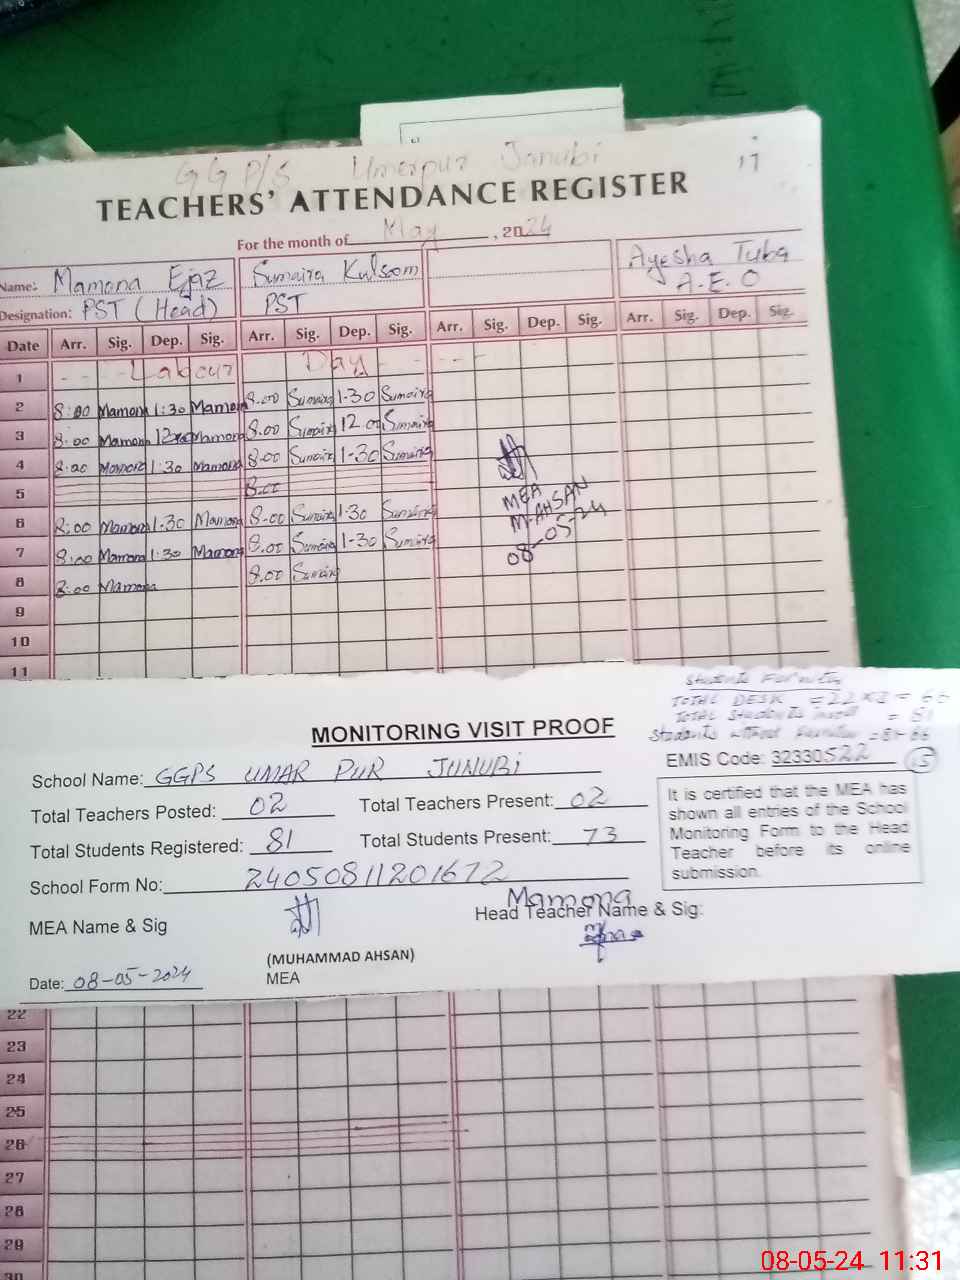 GGP/S Umerpur Janubi 17
TEACHERS' ATTENDANCE REGISTER
For the month of May, 2024
Name: Mamona Ejaz Sumaira Kulsom Ayesha Tuba
Designation: PST (Head) PST A.E.O
Date Arr. Sig. Dep. Sig. Arr. Sig. Dep. Sig. Arr. Sig. Dep. Sig. Arr. Sig. Dep. Sig.
1 Labour Day
2 8:00 Mamona 1:30 Mamona 8.00 Sumaira 1-30 Sumaira
3 8:00 Mamona 12:00 Mamona 8.00 Sumaira 12.00 Sumaira
4 8:00 Mamona 1:30 Mamona 8.00 Sumaira 1-30 Sumaira
5 8.00
6 8:00 Mamona 1:30 Mamona 8.00 Sumaira 1-30 Sumaira
7 8:00 Mamona 1:30 Mamona 8.00 Sumaira 1-30 Sumaira
8 8:00 Mamona 8.00 Sumaira
MEA
M.AHSAN
08-05-24
9
10
11
Students Furniture
TOTAL DESK = 22 X 3 = 66
TOTAL Students = 81
Students without Furniture = 81-66
15
MONITORING VISIT PROOF
EMIS Code: 32330522
School Name: GGPS UMAR PUR JUNUBI
Total Teachers Posted: 02 Total Teachers Present: 02
Total Students Registered: 81 Total Students Present: 73
School Form No: 24050811201672
It is certified that the MEA has
shown all entries of the School
Monitoring Form to the Head
Teacher before its online
submission.
MEA Name & Sig
Mamona
Head Teacher Name & Sig:
(MUHAMMAD AHSAN)
MEA
Date: 08-05-2024
22
23
24
25
26
27
28
29
30
08-05-24 11:31